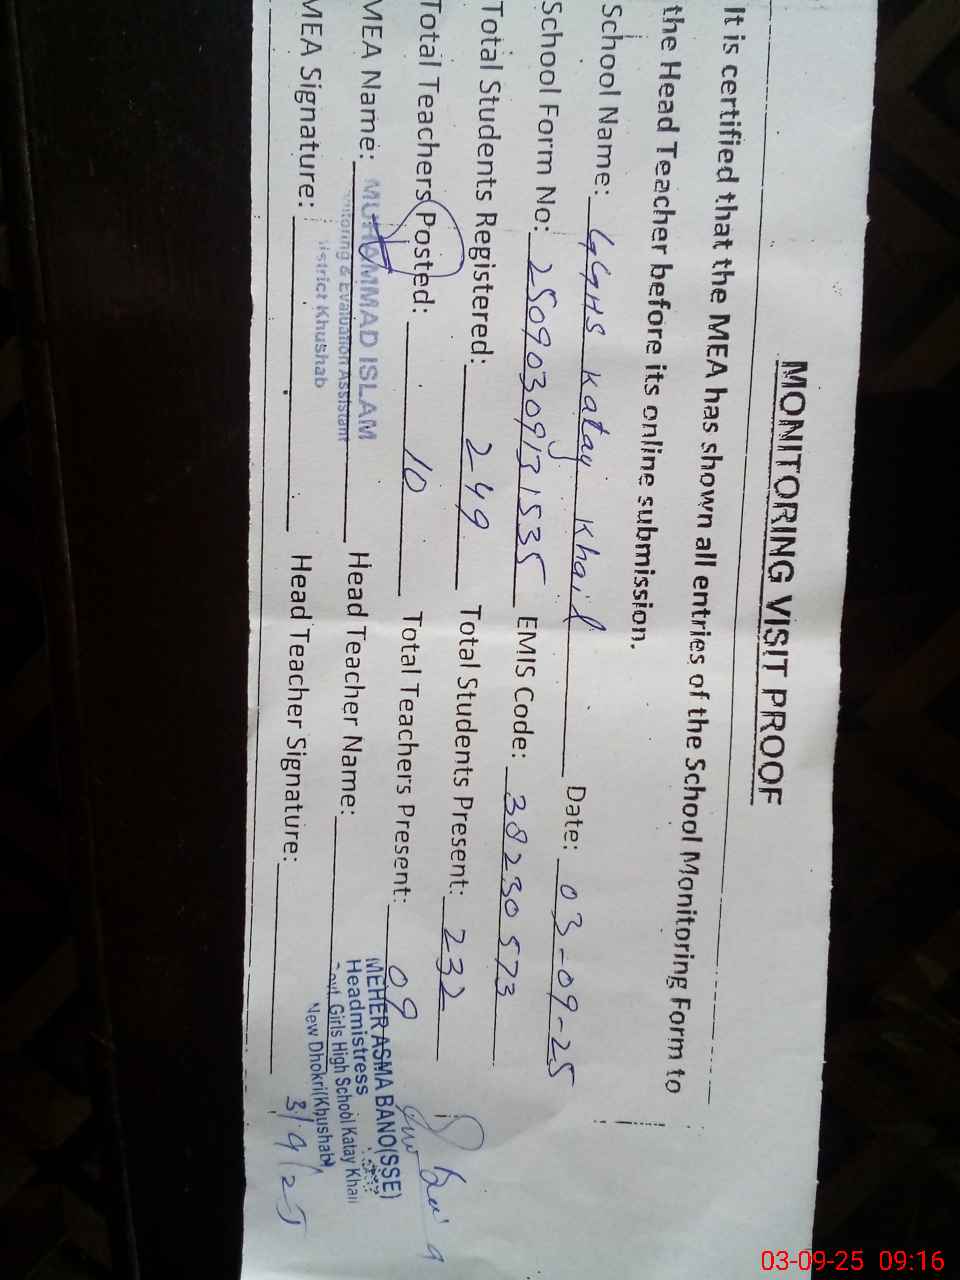 MONITORING VISIT PROOF
It is certified that the MEA has shown all entries of the School Monitoring Form to
the Head Teacher before its online submission.
School Name: GGHS Katay Khail Date: 03-09-25
School Form No: 25090309131535 EMIS Code: 38230573
Total Students Registered: 249 Total Students Present: 232
Total Teachers Posted: 10 Total Teachers Present: 09
MEA Name: MUHAMMAD ISLAM Head Teacher Name: MEHER ASMA BANO(SSE)
nitoring & Evaluation Assistant Headmistress
istrict Khushab Govt. Girls High School Katay Khail
New Dhokri(Khushab)
MEA Signature: Head Teacher Signature: 3/9/25
03-09-25 09:16